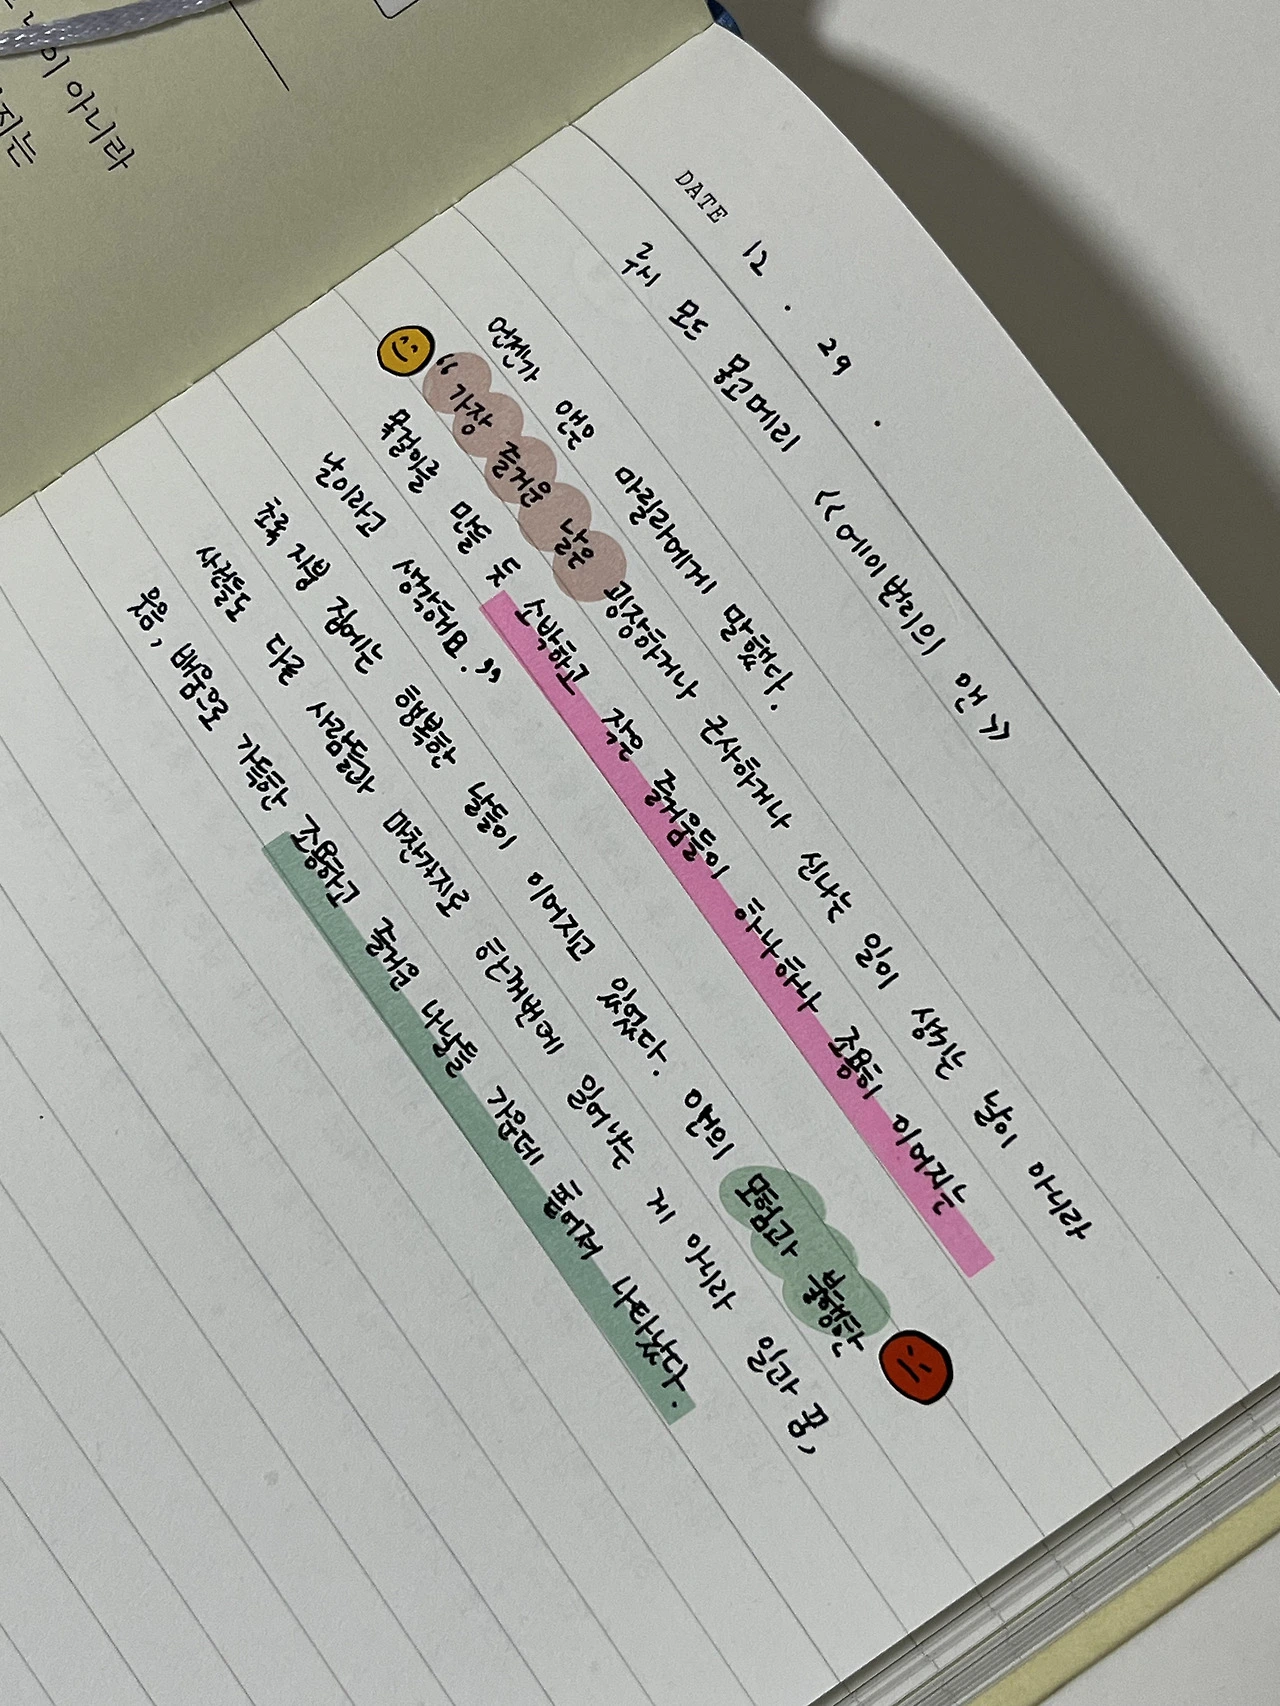 이 아니라
지는
DATE 12 . 29 .
루시 모드 몽고메리 《에이번리의 앤》
언젠가 앤은 마릴라에게 말했다.
“가장 즐거운 날은 굉장하거나 근사하거나 신나는 일이 생기는 날이 아니라
목걸이를 만들 듯 소박하고 작은 즐거움들이 하나하나 조용히 이어지는
날이라고 생각해요.”
초록 지붕 집에는 행복한 날들이 이어지고 있었다. 앤의 모험과 불행한
사건들도 다른 사람들과 마찬가지로 한꺼번에 일어나는 게 아니라 일과 꿈,
웃음, 배움으로 가득한 조용하고 즐거운 나날들 가운데 흩어져 나타났다.